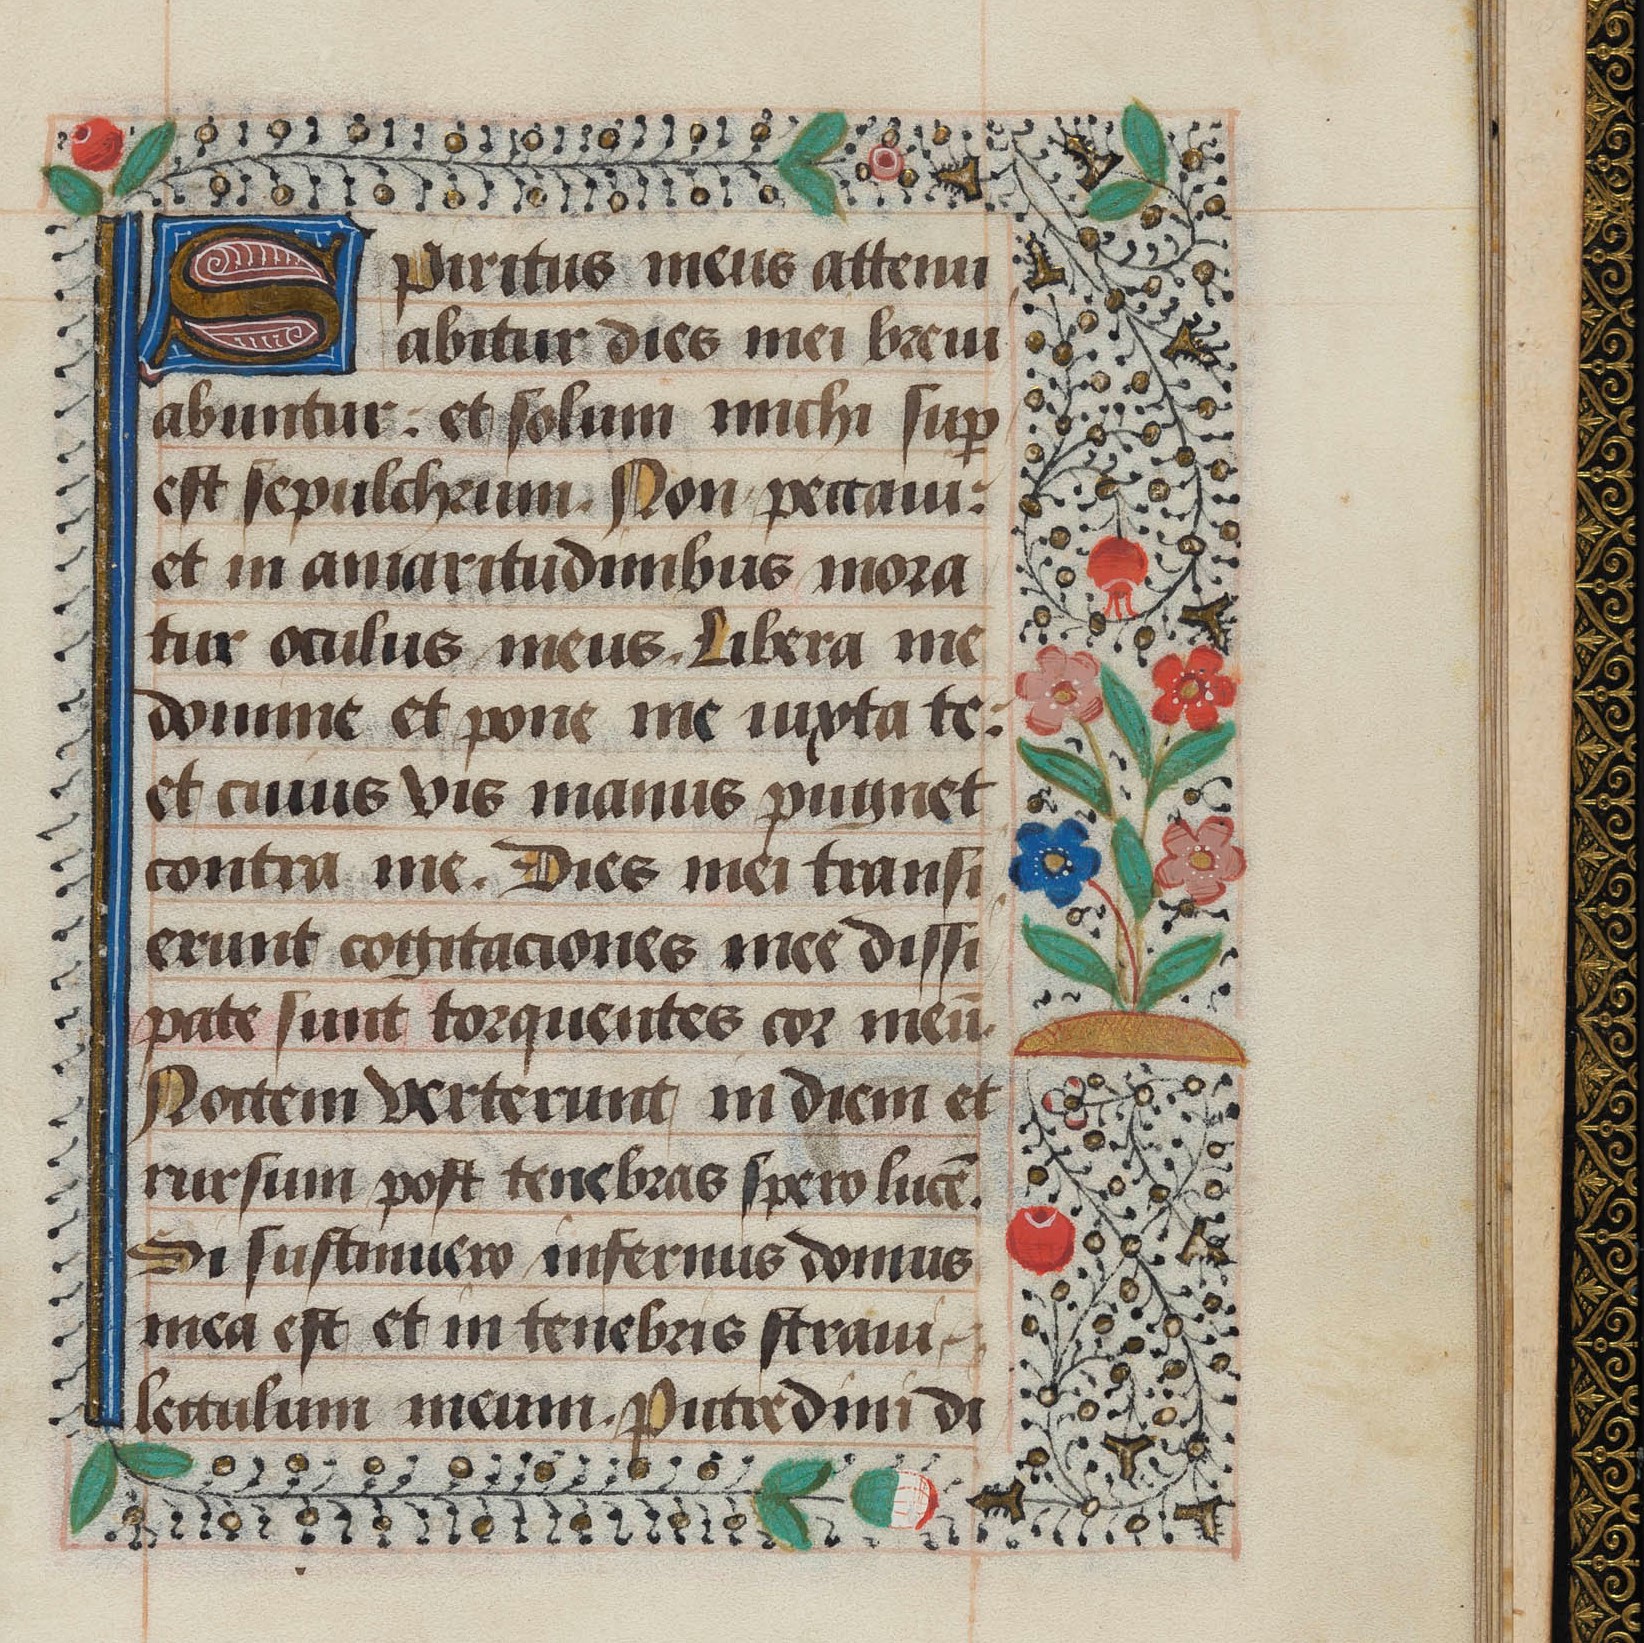 Spiritus meus attenu
abitur dies mei breui
abuntur: et solum michi sup̱
est sepulchrum. Non peccaui:
et in amaritudinibus mora
tur oculus meus. Libera me
domine et pone me iuxta te:
et cuiuis vis manus pugnet
contra me. Dies mei transi
erunt cogitaciones mee dissi
pate sunt torquentes cor meū.
Noctem verterunt in diem et
rursum post tenebras spero lucē.
Si sustinuero infernus domus
mea est et in tenebris straui
lectulum meum. Putredini di